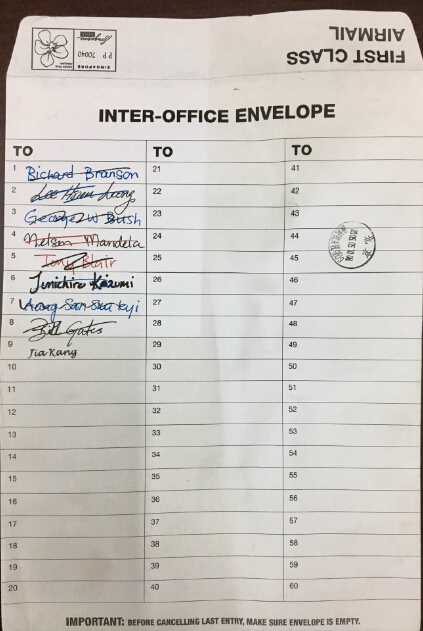 FIRST CLASS
AIRMAIL
SINGAPORE
PP 70040
INTER-OFFICE ENVELOPE
TO TO TO
1 Richard Branson 21 41
2 Lee Hsien Loong 22 42
3 George W Bush 23 43
4 Nelson Mandela 24 44
5 Tony Blair 25 45
6 Junichiro Koizumi 26 46
7 Aung San Suu Kyi 27 47
8 Bill Gates 28 48
9 Jia Kang 29 49
10 30 50
11 31 51
12 32 52
13 33 53
14 34 54
15 35 55
16 36 56
17 37 57
18 38 58
19 39 59
20 40 60
IMPORTANT: BEFORE CANCELLING LAST ENTRY, MAKE SURE ENVELOPE IS EMPTY.